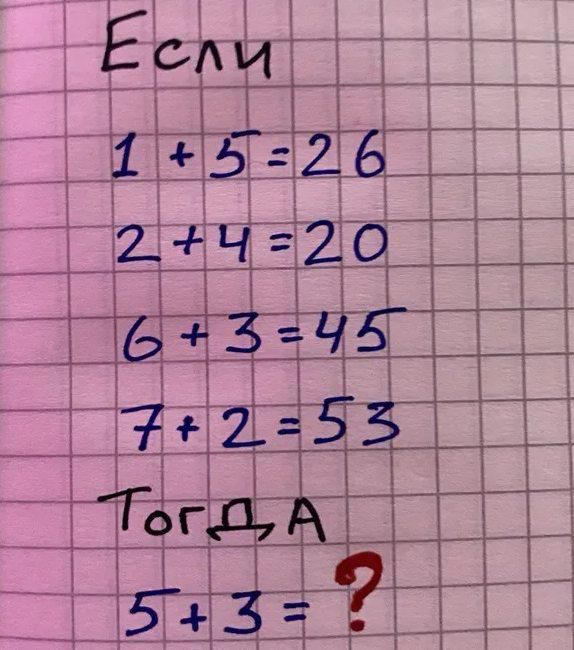 Если
1 + 5 = 26
2 + 4 = 20
6 + 3 = 45
7 + 2 = 53
ТогДА
5 + 3 = ?